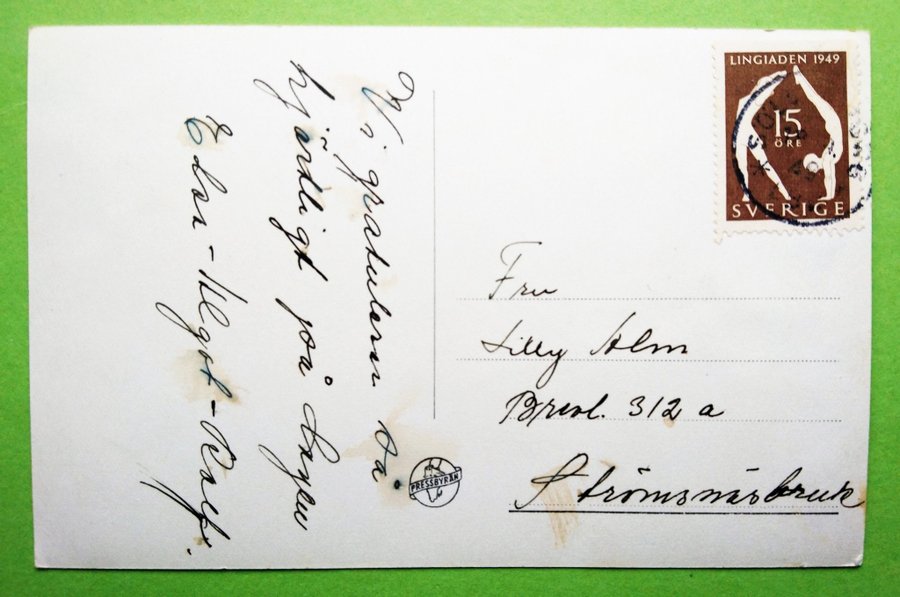 Vi gratulerar så
hjärtligt på dagen
Elsa - Algot - Ralf.
LINGIADEN 1949
15
ÖRE
SVERIGE
Fru
Lilly Alm
Brevl. 312 a
Strömsnäsbruk
PRESSBYRÅN